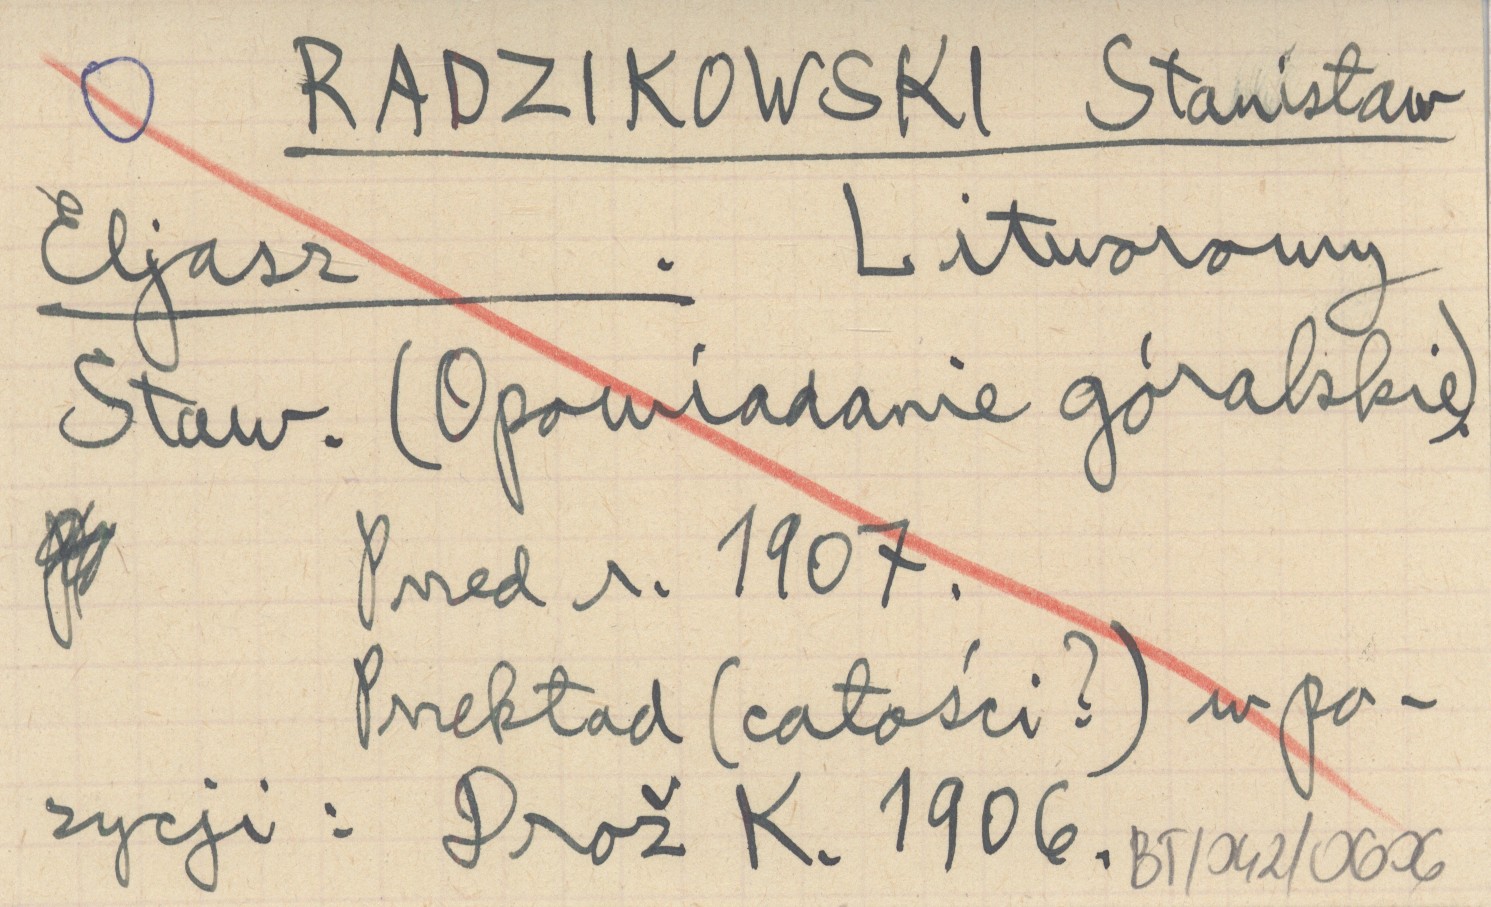 RADZIKOWSKI Stanisław
Eljasz . Litworowy
Staw. (Opowiadanie góralskie).
Przed r. 1907.
Przekład (całości?) w po-
zycji: Drož K. 1906.
BT/042/0606